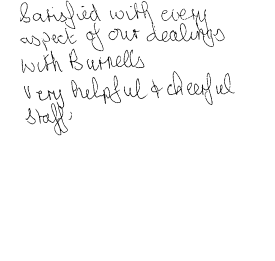 Satisfied with every
aspect of our dealings
with Burnells
Very helpful & cheerful
staff,